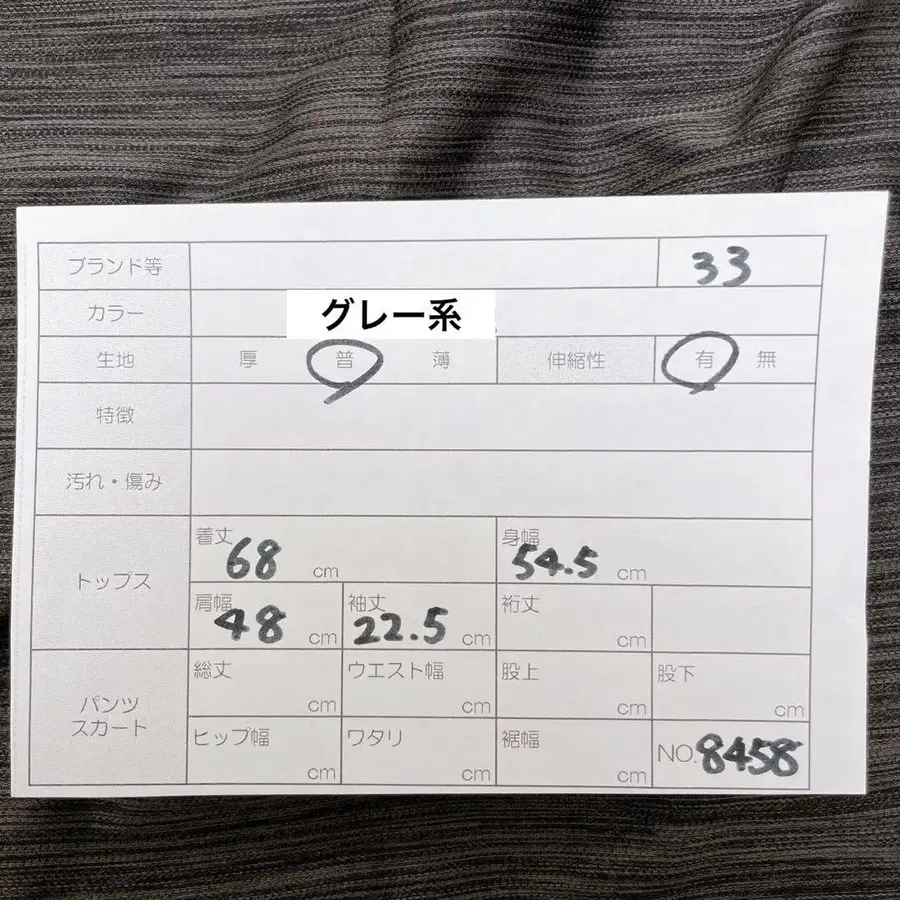 ブランド等 33
カラー グレー系
生地 厚 普 薄 伸縮性 有 無
特徴
汚れ・傷み
トップス
着丈 68 cm 身幅 54.5 cm
肩幅 48 cm 袖丈 22.5 cm 裄丈 cm
パンツ
スカート
総丈 cm ウエスト幅 cm 股上 cm 股下 cm
ヒップ幅 cm ワタリ cm 裾幅 cm NO.8458